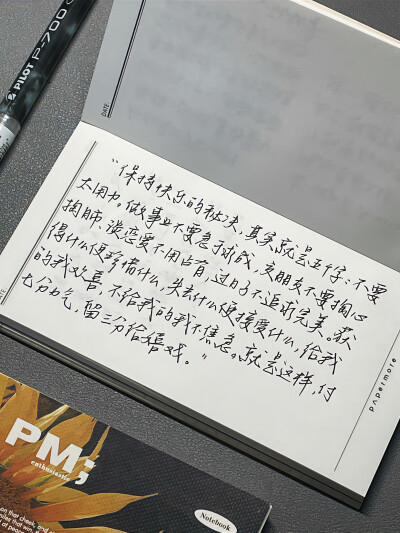 PILOT P-700
DATE:
“保持快乐的秘诀，其实就是五字：不要
太用力。做事业不要急于求成，交朋友不要掏心
掏肺，谈恋爱不用占有，过日子不追求完美。获
得什么便珍惜什么，失去什么便接受什么，给我
的我欢喜，不给我的我不焦急。就是这样，付
七分力气，留三分给嬉戏。”
papermore
PM;
enthusiastic
Notebook
on that cheek, and
smiles that win,